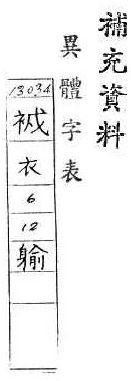 補充資料
異體字表
13034
衣
6
12